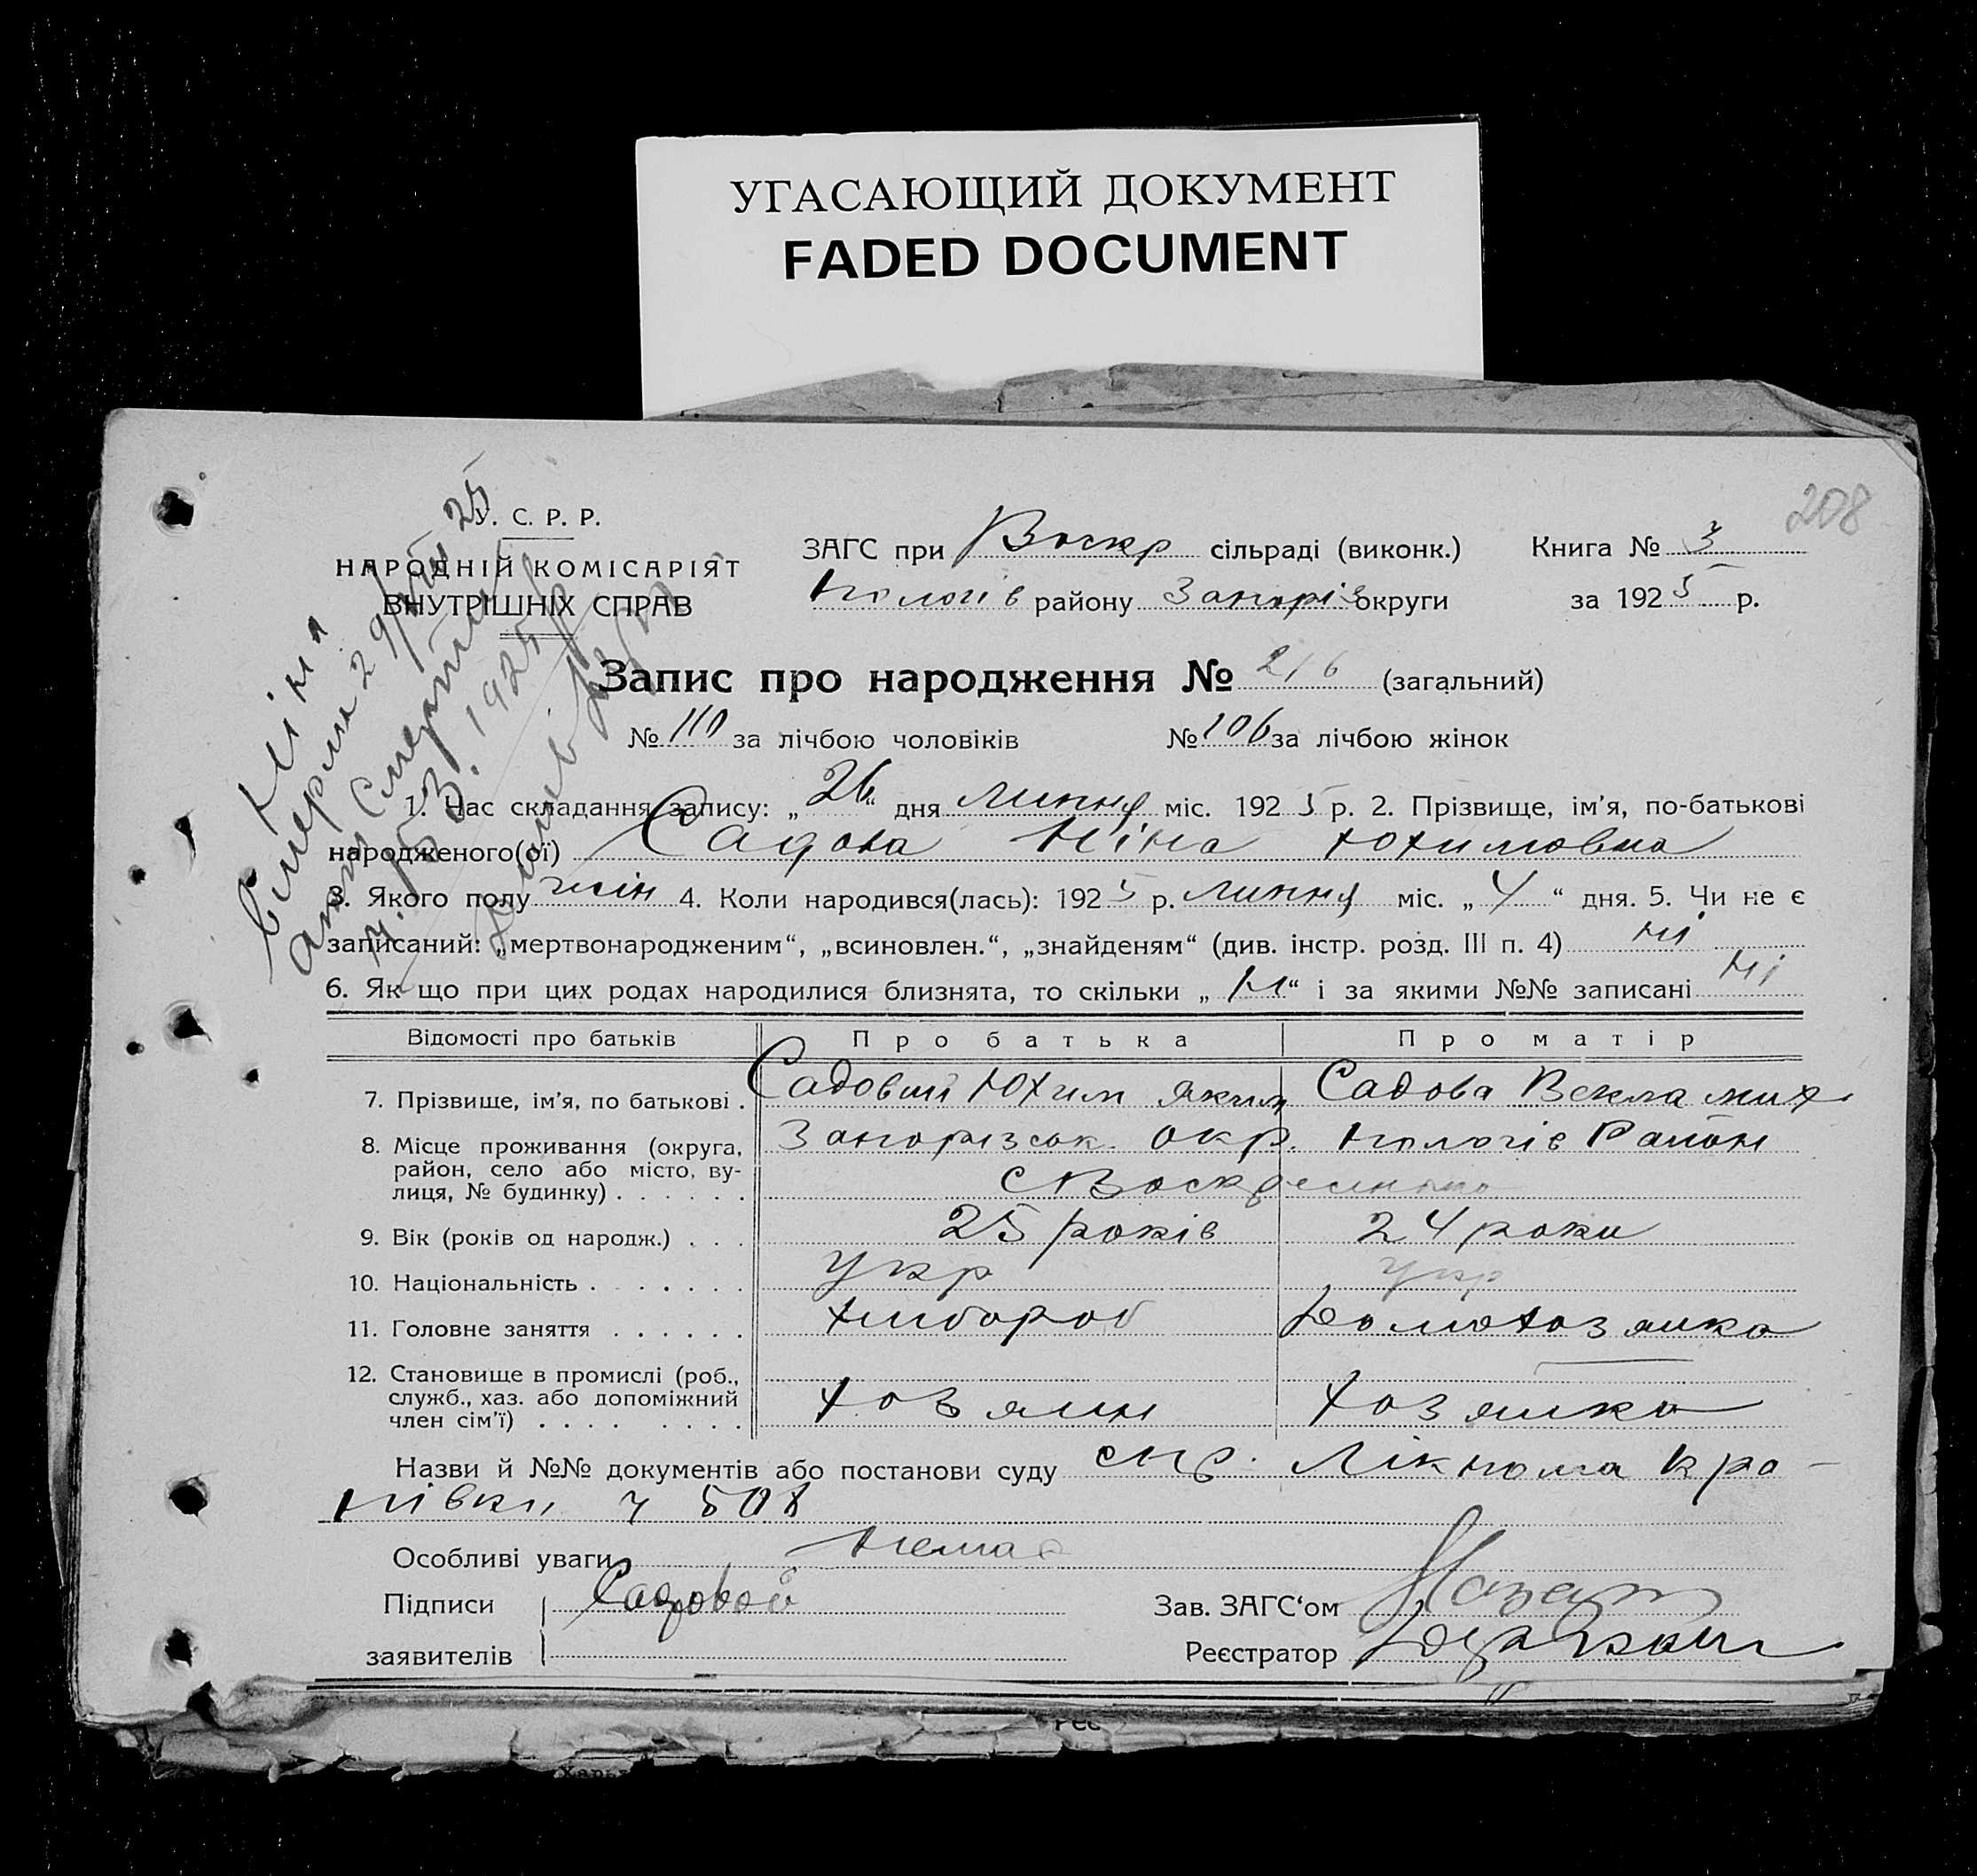 УГАСАЮЩИЙ ДОКУМЕНТ
FADED DOCUMENT
208
У. С. Р. Р.
НАРОДНІЙ КОМІСАРІЯТ
ВНУТРІШНІХ СПРАВ
ЗАГС при Воскр сільраді (виконк.) Книга № 3
Пологів району Запоріз округи за 1925 р.
Запис про народження № 216 (загальний)
№ 110 за лічбою чоловіків № 106 за лічбою жінок
1. Час складання запису: „26“ дня липня міс. 1925 р. 2. Прізвище, ім’я, по-батькові
народженого(ої) Садова Ніна Юхимовна
3. Якого полу жін 4. Коли народився(лась): 1925 р. липня міс. „4“ дня. 5. Чи не є
записаний: „мертвонародженим“, „всиновлен.“, „знайденям“ (див. інстр. розд. III п. 4) ні
6. Як що при цих родах народилися близнята, то скільки „ “ і за якими №№ записані ні
Відомості про батьків Про батька Про матір
7. Прізвище, ім’я, по батькові . Садовий Юхим Яким Садова Векла мих
8. Місце проживання (округа, Запорізськ. окр. Пологів Район
район, село або місто, ву-
лиця, № будинку) . . . . . . с Воскресенка
9. Вік (років од народж.) . . . 25 років 24 роки
10. Національність . . . . . . . Укр укр
11. Головне заняття . . . . . . хлібороб Домохозяйка
12. Становище в промислі (роб.,
служб., хаз. або допоміжний хозяин хозяйка
член сім’ї) . . . . . . . .
Назви й №№ документів або постанови суду Лікпома
ч 508
Особливі уваги немає
Підписи Садовой Зав. ЗАГС‘ом
заявителів Реєстратор
Ніна
вмерла 29/ 25
акт смерти
ч. 153. 1925 р